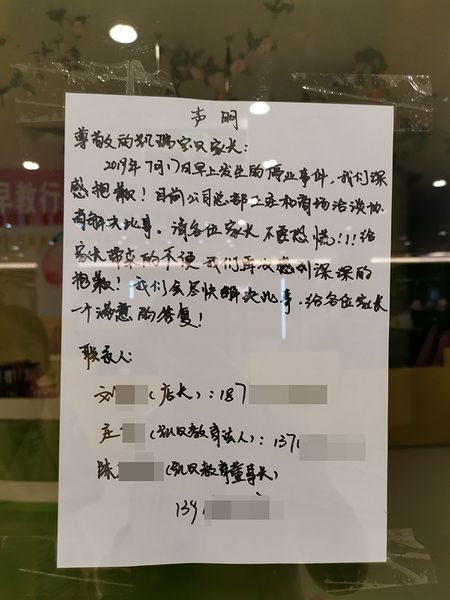 声明
尊敬的凯瑞宝贝家长:
2019年7月17日早上发生的停业事件,我们深
感抱歉!目前公司总部正在和商场洽谈协
商解决此事。请各位家长不要恐慌!!!给
家长带来的不便我们再次感到深深的
抱歉!我们会尽快解决此事,给各位家长
一个满意的答复!
联系人:
刘 (店长):187
庄 (凯贝教育法人):1371
陈 (凯贝教育董事长)
139
早教行